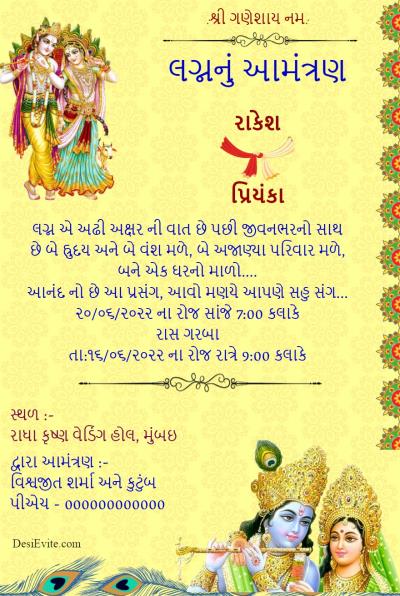 શ્રી ગણેશાય નમ:
લગ્નનું આમંત્રણ
રાકેશ
પ્રિયંકા
લગ્ન એ અઢી અક્ષર ની વાત છે પછી જીવનભરનો સાથ
છે બે હ્રુદય અને બે વંશ મળે, બે અજાણ્યા પરિવાર મળે,
બને એક ઘરનો માળો....
આનંદ નો છે આ પ્રસંગ, આવો મણયે આપણે સહુ સંગ...
૨૦/૦૬/૨૦૨૨ ના રોજ સાંજે 7:00 કલાકે
રાસ ગરબા
તા:૧૬/૦૬/૨૦૨૨ ના રોજ રાત્રે 9:00 કલાકે
સ્થળ :-
રાધા કૃષ્ણ વેડિંગ હોલ, મુંબઇ
દ્વારા આમંત્રણ :-
વિશ્વજીત શર્મા અને કુટુંબ
પીએચ - 000000000000
DesiEvite.com